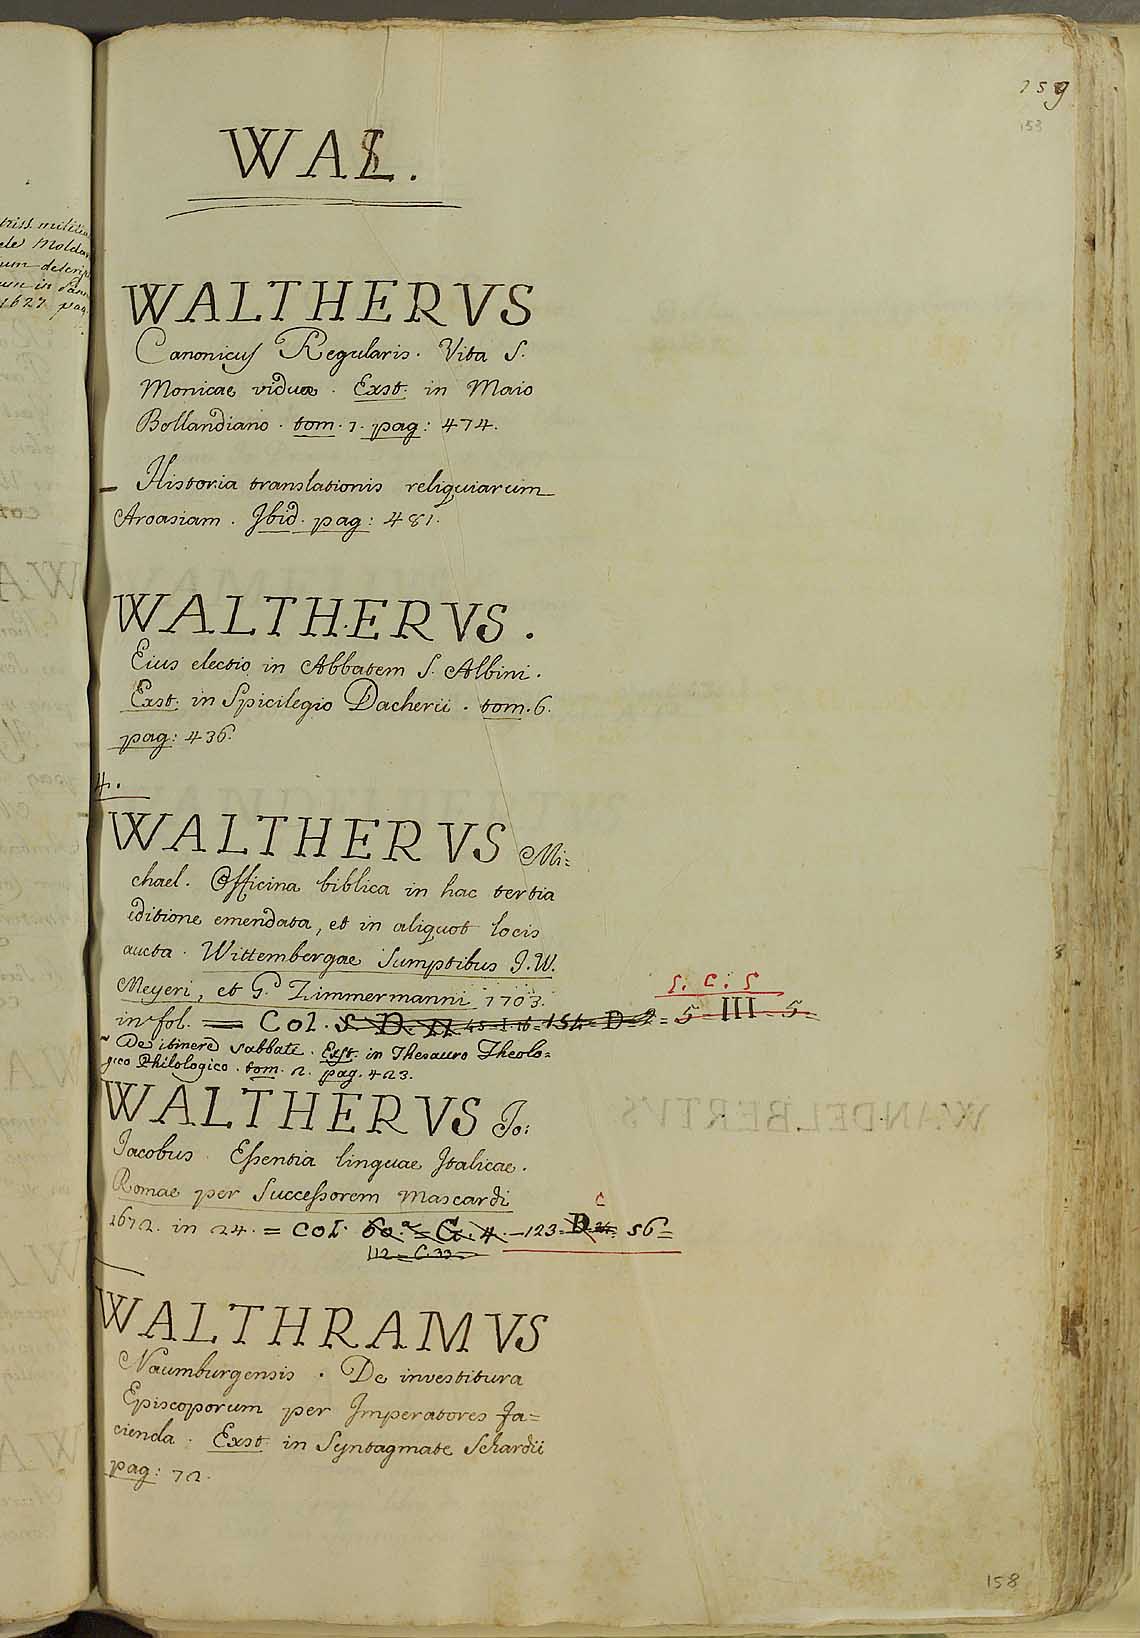 159
153
WAL.
triss. militia
1627 pag.
WALTHERVS
Canonicus Regularis. Vita S.
Monicae viduae. Exst. in Maio
Bollandiano. tom. 1. pag: 474.
Historia translationis reliquiarum
Aroasiam. Ibid. pag: 481.
WALTHERVS.
Eius electio in Abbatem S. Albini.
Exst. in Spicilegio Dacherii. tom. 6.
pag: 436.
4.
WALTHERVS Mi=
chael. Officina biblica in hac tertia
editione emendata, et in aliquot locis
aucta. Wittembergae Sumptibus I. W.
Meyeri, et G. Zimmermanni 1703.
S. C. S
in fol. = Col. S. D. 45 = I. 16 = 154 = D = 2 = 5 III 5 =
De itinere sabbati. Exst. in Thesauro Theolo=
gico Philologico. tom. 2. pag. 423.
WALTHERVS Jo:
Jacobus. Essentia linguae Italicae.
Romae per Successorem Mascardi
C
1672. in 24. = Col. 60. = G. 4. - 123 = D 56 =
112 = C. 33 =
WALTHRAMVS
Naumburgensis. De investitura
Episcoporum per Imperatores fa=
cienda. Exst. in Syntagmate Schardii
pag: 72.
158